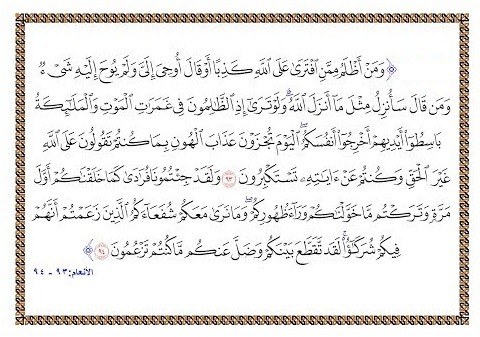 ﴿ وَمَنْ أَظْلَمُ مِمَّنِ ٱفْتَرَىٰ عَلَى ٱللَّهِ كَذِبًا أَوْ قَالَ أُوحِىَ إِلَىَّ وَلَمْ يُوحَ إِلَيْهِ شَىْءٌ
وَمَن قَالَ سَأُنزِلُ مِثْلَ مَآ أَنزَلَ ٱللَّهُ ۗ وَلَوْ تَرَىٰٓ إِذِ ٱلظَّٰلِمُونَ فِى غَمَرَٰتِ ٱلْمَوْتِ وَٱلْمَلَٰٓئِكَةُ
بَاسِطُوٓا۟ أَيْدِيهِمْ أَخْرِجُوٓا۟ أَنفُسَكُمُ ۖ ٱلْيَوْمَ تُجْزَوْنَ عَذَابَ ٱلْهُونِ بِمَا كُنتُمْ تَقُولُونَ عَلَى ٱللَّهِ
غَيْرَ ٱلْحَقِّ وَكُنتُمْ عَنْ ءَايَٰتِهِۦ تَسْتَكْبِرُونَ ٩٣ وَلَقَدْ جِئْتُمُونَا فُرَٰدَىٰ كَمَا خَلَقْنَٰكُمْ أَوَّلَ
مَرَّةٍ وَتَرَكْتُم مَّا خَوَّلْنَٰكُمْ وَرَآءَ ظُهُورِكُمْ ۖ وَمَا نَرَىٰ مَعَكُمْ شُفَعَآءَكُمُ ٱلَّذِينَ زَعَمْتُمْ أَنَّهُمْ
فِيكُمْ شُرَكَٰٓؤُا۟ ۚ لَقَد تَّقَطَّعَ بَيْنَكُمْ وَضَلَّ عَنكُم مَّا كُنتُمْ تَزْعُمُونَ ٩٤ ﴾
الأنعام: ٩٣ - ٩٤